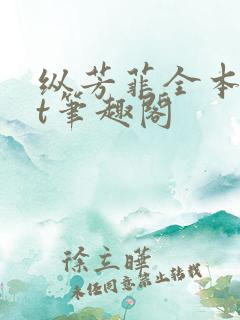 纵芳菲全本
t笔趣阁
徐立晔
未经同意禁止转载